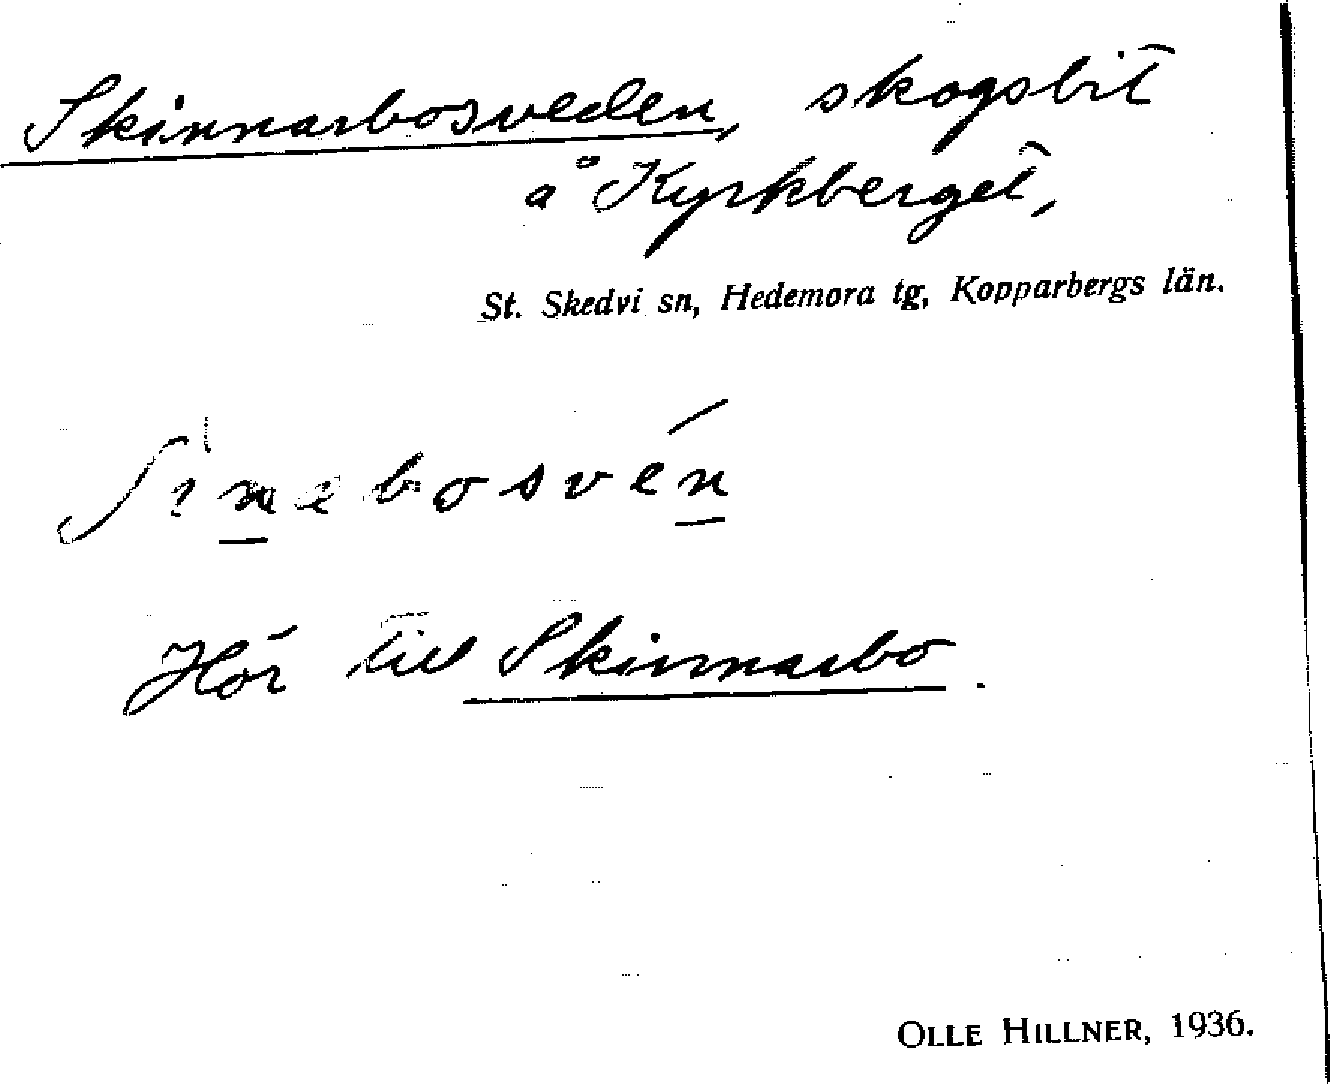 Skinnarbosveden, skogsbit
å Kyrkberget,
St. Skedvi sn, Hedemora tg, Kopparbergs län.
Hör till Skinnarbo.
OLLE HILLNER, 1936.